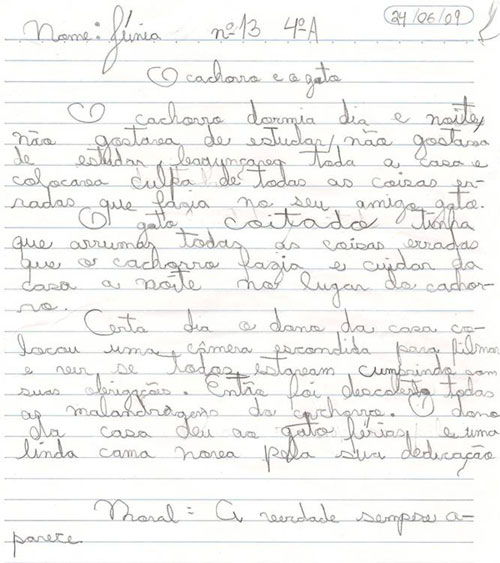 Nome: Júnia nº 13 4ºA 24/06/09
O cachorro e o gato
O cachorro dormia dia e noite,
não gostava de estudar, não gostava
de estudar, bagunçava toda a casa e
colocava culpa de todas as coisas er-
radas que fazia no seu amigo gato.
O gato coitado tinha
que arrumar todas as coisas erradas
que o cachorro fazia e cuidar da
casa a noite no lugar do cachor-
ro.
Certa dia o dono da casa co-
locou uma câmera escondida para filmar
e ver se todos estavam cumprindo com
suas obrigações. Então foi descoberto todas
as malandragens do cachorro. O dono
da casa deu ao gato férias e uma
linda cama nova pela sua dedicação
Moral = A verdade sempre a-
parece.